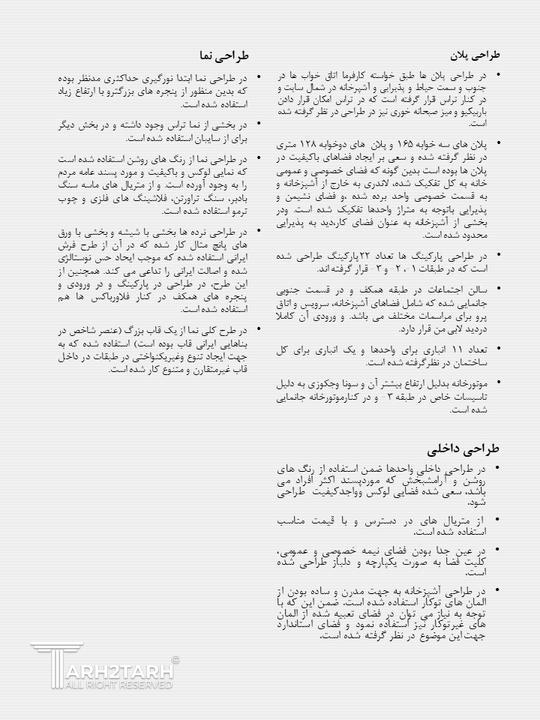 طراحی پلان
در طراحی پلان ها طبق خواسته کارفرما اتاق خواب ها در
جنوب و سمت حیاط و پذیرایی و آشپزخانه در شمال سایت و
در کنار تراس قرار گرفته است که در تراس امکان قرار دادن
باربیکیو و میز صبحانه خوری نیز در طراحی در نظر گرفته شده
است.
پلان های سه خوابه ۱۶۵ و پلان های دوخوابه ۱۲۸ متری
در نظر گرفته شده و سعی بر ایجاد فضاهای باکیفیت در
پلان ها بوده است بدین گونه که فضای خصوصی و عمومی
خانه به کل تفکیک شده، لاندری به خارج از آشپزخانه و
به قسمت خصوصی واحد برده شده ،و فضای نشیمن و
پذیرایی باتوجه به متراژ واحدها تفکیک شده است. ودر
بخشی از آشپزخانه به عنوان فضای کار،دید به پذیرایی
محدود شده است.
در طراحی پارکینگ ها تعداد ۲۲پارکینگ طراحی شده
است که در طبقات ۱- ، ۲- و ۳- قرار گرفته اند.
سالن اجتماعات در طبقه همکف و در قسمت جنوبی
جانمایی شده که شامل فضاهای آشپزخانه، سرویس و اتاق
پرو برای مراسمات مختلف می باشد. و ورودی آن کاملا
دردید لابی من قرار دارد.
تعداد ۱۱ انباری برای واحدها و یک انباری برای کل
ساختمان در نظرگرفته شده است.
موتورخانه بدلیل ارتفاع بیشتر آن و سونا وجکوزی به دلیل
تاسیسات خاص در طبقه ۳- و در کنارموتورخانه جانمایی
شده است.
طراحی داخلی
در طراحی داخلی واحدها ضمن استفاده از رنگ های
روشن و آرامشبخش که موردپسند اکثر افراد می
باشد، سعی شده فضایی لوکس وواجدکیفیت طراحی
شود.
از متریال های در دسترس و با قیمت مناسب
استفاده شده است.
در عین جدا بودن فضای نیمه خصوصی و عمومی،
کلیت فضا به صورت یکپارچه و دلباز طراحی شده
است.
در طراحی آشپزخانه به جهت مدرن و ساده بودن از
المان های توکار استفاده شده است. ضمن این که با
توجه به نیاز می توان در فضای تعبیه شده از المان
های غیرتوکار نیز استفاده نمود و فضای استاندارد
جهت این موضوع در نظر گرفته شده است.
طراحی نما
در طراحی نما ابتدا نورگیری حداکثری مدنظر بوده
که بدین منظور از پنجره های بزرگترو با ارتفاع زیاد
استفاده شده است.
در بخشی از نما تراس وجود داشته و در بخش دیگر
برای از سایبان استفاده شده است.
در طراحی نما از رنگ های روشن استفاده شده است
که نمایی لوکس و باکیفیت و مورد پسند عامه مردم
را به وجود آورده است. و از متریال های ماسه سنگ
بادبر، سنگ تراورتن، فلاشینگ های فلزی و چوب
ترمو استفاده شده است.
در طراحی نرده ها بخشی با شیشه و بخشی با ورق
های پانچ متال کار شده که در آن از طرح فرش
ایرانی استفاده شده که موجب ایجاد حس نوستالژی
شده و اصالت ایرانی را تداعی می کند. همچنین از
این طرح، در طراحی در پارکینگ و در ورودی و
پنجره های همکف در کنار فلاورباکس ها هم
استفاده شده است.
در طرح کلی نما از یک قاب بزرگ (عنصر شاخص در
بناهایی ایرانی قاب بوده است) استفاده شده که به
جهت ایجاد تنوع وغیریکنواختی در طبقات در داخل
قاب غیرمتقارن و متنوع کار شده است.
TARH2TARH©
ALL RIGHT RESERVED